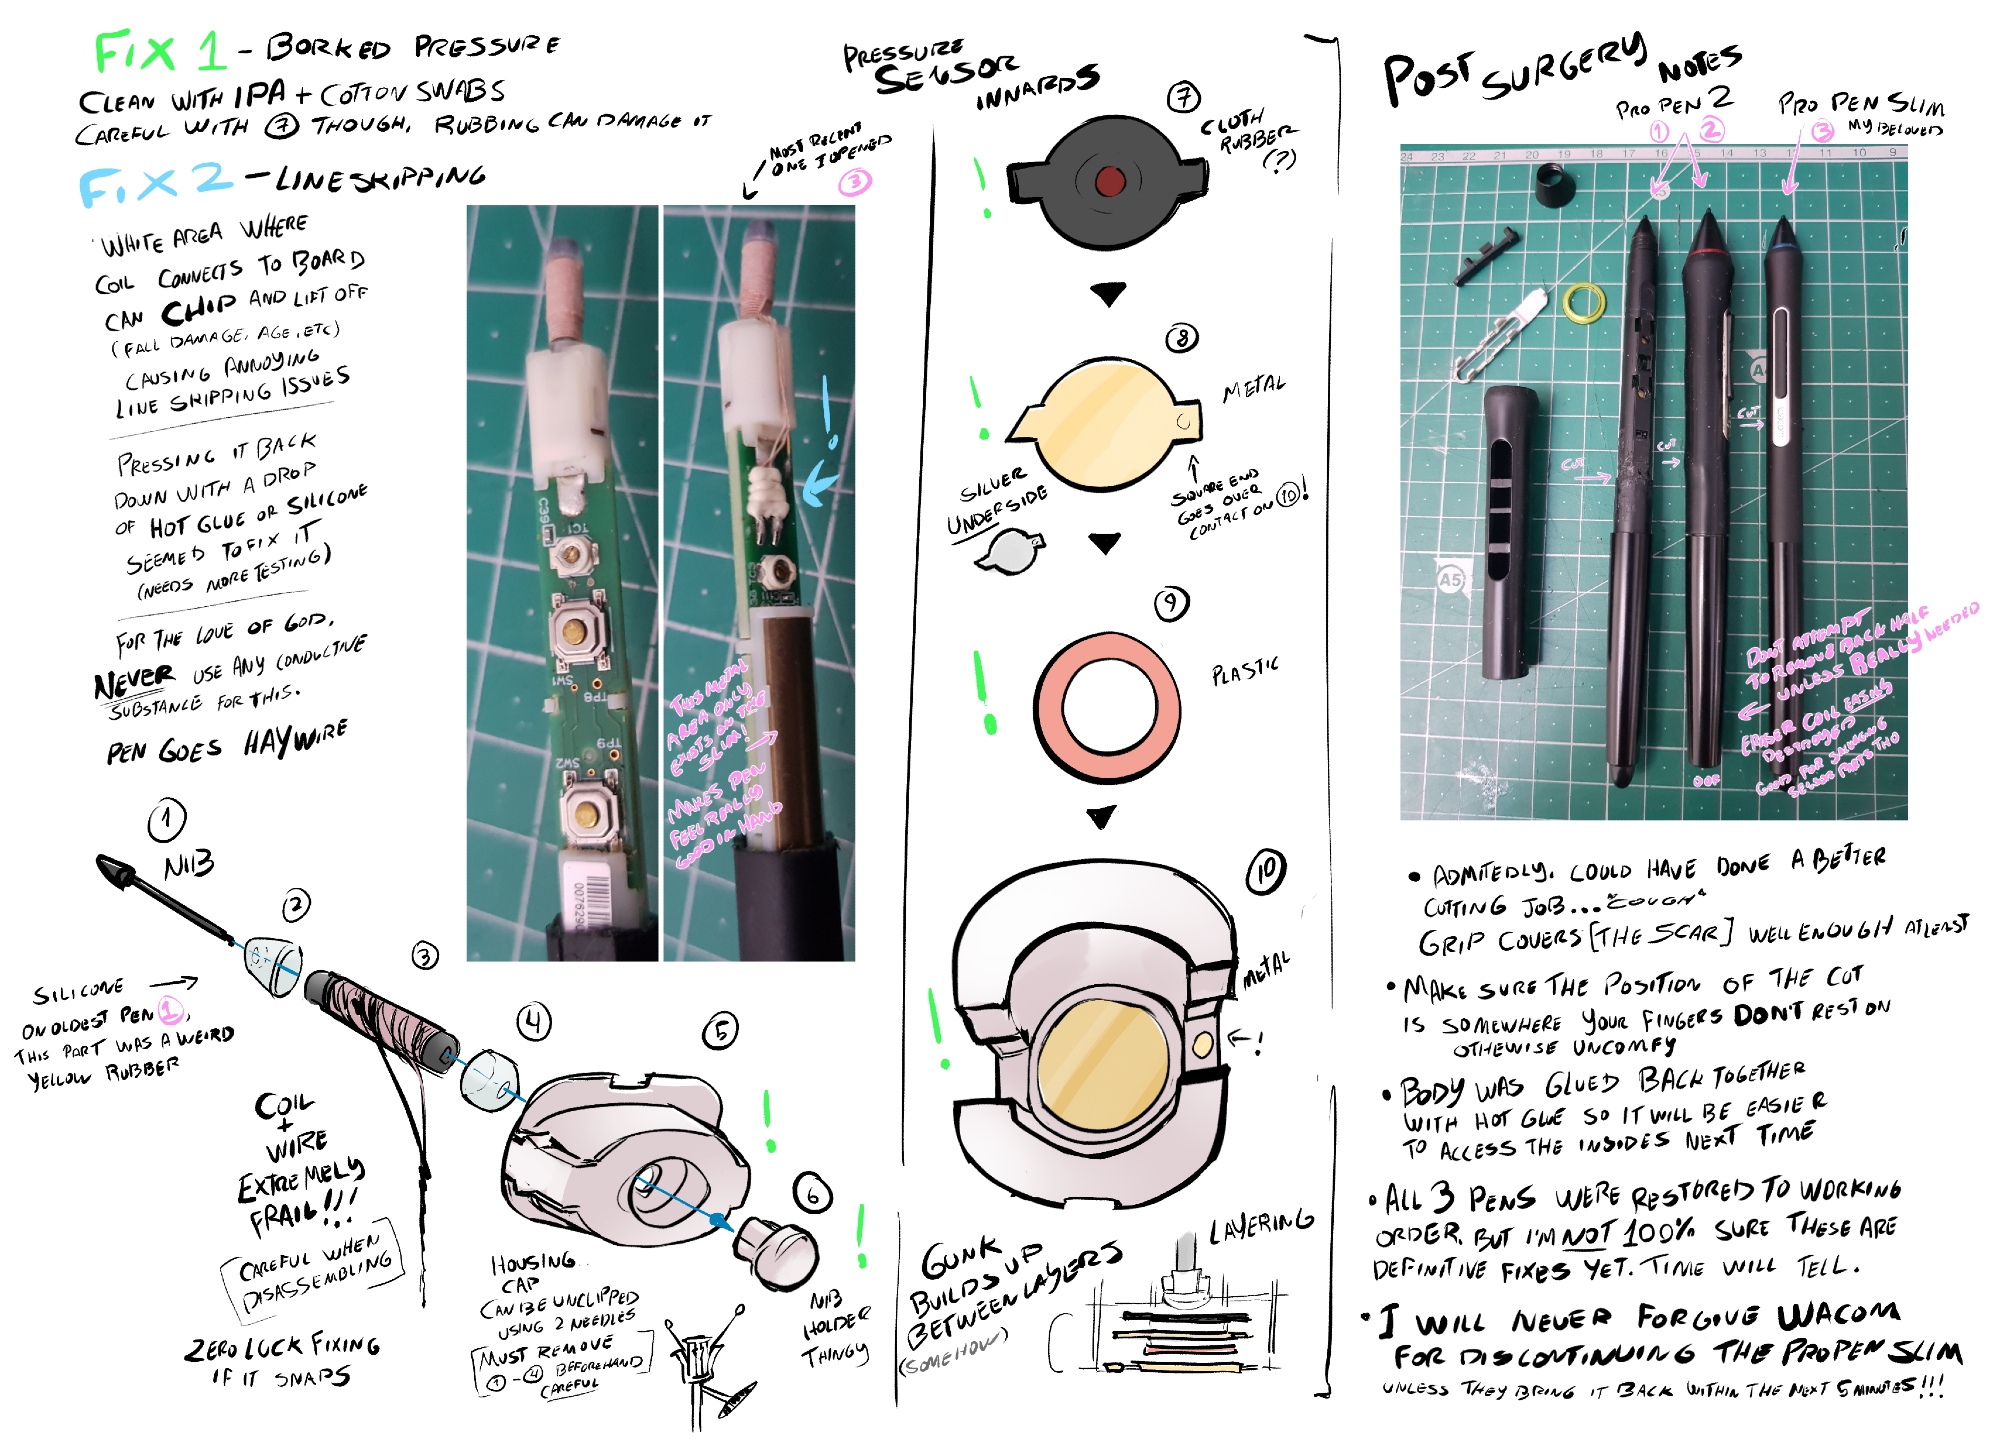 FIX 1 - BORKED PRESSURE
CLEAN WITH IPA + COTTON SWABS
CAREFUL WITH ⑦ THOUGH, RUBBING CAN DAMAGE IT
FIX 2 - LINESKIPPING
WHITE AREA WHERE
COIL CONNECTS TO BOARD
CAN CHIP AND LIFT OFF
(FALL DAMAGE, AGE, ETC)
CAUSING ANNOYING
LINE SKIPPING ISSUES
PRESSING IT BACK
DOWN WITH A DROP
OF HOT GLUE OR SILICONE
SEEMED TO FIX IT
(NEEDS MORE TESTING)
FOR THE LOVE OF GOD,
NEVER USE ANY CONDUCTIVE
SUBSTANCE FOR THIS.
PEN GOES HAYWIRE
MOST RECENT
ONE I OPENED
③
C39
TC1
SW1
TP8
TP9
SW2
THIS METAL
AREA ONLY
EXISTS ON THE
SLIM!
MAKES PEN
FEEL REALLY
GOOD IN HAND
①
NIB
②
SILICONE
ON OLDEST PEN 1,
THIS PART WAS A WEIRD
YELLOW RUBBER
③
COIL
+
WIRE
EXTREMELY
FRAIL!!!
[CAREFUL WHEN
DISASSEMBLING]
ZERO LUCK FIXING
IF IT SNAPS
④
⑤
HOUSING
CAP
CAN BE UNCLIPPED
USING 2 NEEDLES
[MUST REMOVE
①-④ BEFOREHAND]
CAREFUL
!
⑥
!
NIB
HOLDER
THINGY
PRESSURE
SENSOR
INNARDS
⑦
CLOTH
RUBBER
(?)
!
⑧
METAL
!
SILVER
UNDERSIDE
SQUARE END
GOES OVER
CONTACT ON ⑩!
⑨
PLASTIC
!
⑩
METAL
!
!
GUNK
BUILDS UP
BETWEEN LAYERS
(SOMEHOW)
LAYERING
POST SURGERY NOTES
PRO PEN 2
① ②
PRO PEN SLIM
③ MY BELOVED
24 23 22 21 20 19 18 17 16 15 14 13 12 11 10 9
A5
CUT
CUT
CUT
wacom
DONT ATTEMPT
TO REMOVE BACK HALF
UNLESS REALLY NEEDED
ERASER COIL EASILY
DESTROYED
OOF
GOOD FOR
PARTS THO
• ADMITEDLY, COULD HAVE DONE A BETTER
CUTTING JOB... *COUGH*
GRIP COVERS [THE SCAR] WELL ENOUGH ATLEAST
• MAKE SURE THE POSITION OF THE CUT
IS SOMEWHERE YOUR FINGERS DON'T REST ON
OTHEWISE UNCOMFY
• BODY WAS GLUED BACK TOGETHER
WITH HOT GLUE SO IT WILL BE EASIER
TO ACCESS THE INSIDES NEXT TIME
• ALL 3 PENS WERE RESTORED TO WORKING
ORDER, BUT I'M NOT 100% SURE THESE ARE
DEFINITIVE FIXES YET. TIME WILL TELL.
• I WILL NEVER FORGIVE WACOM
FOR DISCONTINUING THE PRO PEN SLIM
UNLESS THEY BRING IT BACK WITHIN THE NEXT 5 MINUTES!!!